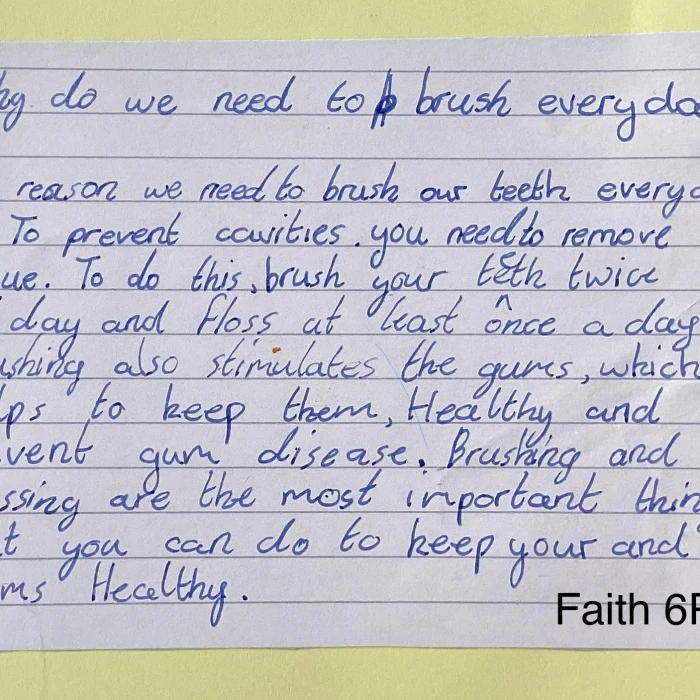 hy do we need to brush everyda
reason we need to brush our teeth everyd
To prevent cavities. you need to remove
ue. To do this, brush your teeth twice
day and floss at least once a day
ushing also stimulates the gums, which
lps to keep them, Healthy and
vent gum disease. Brushing and
ssing are the most important thin
t you can do to keep your and
ms Healthy.
Faith 6F